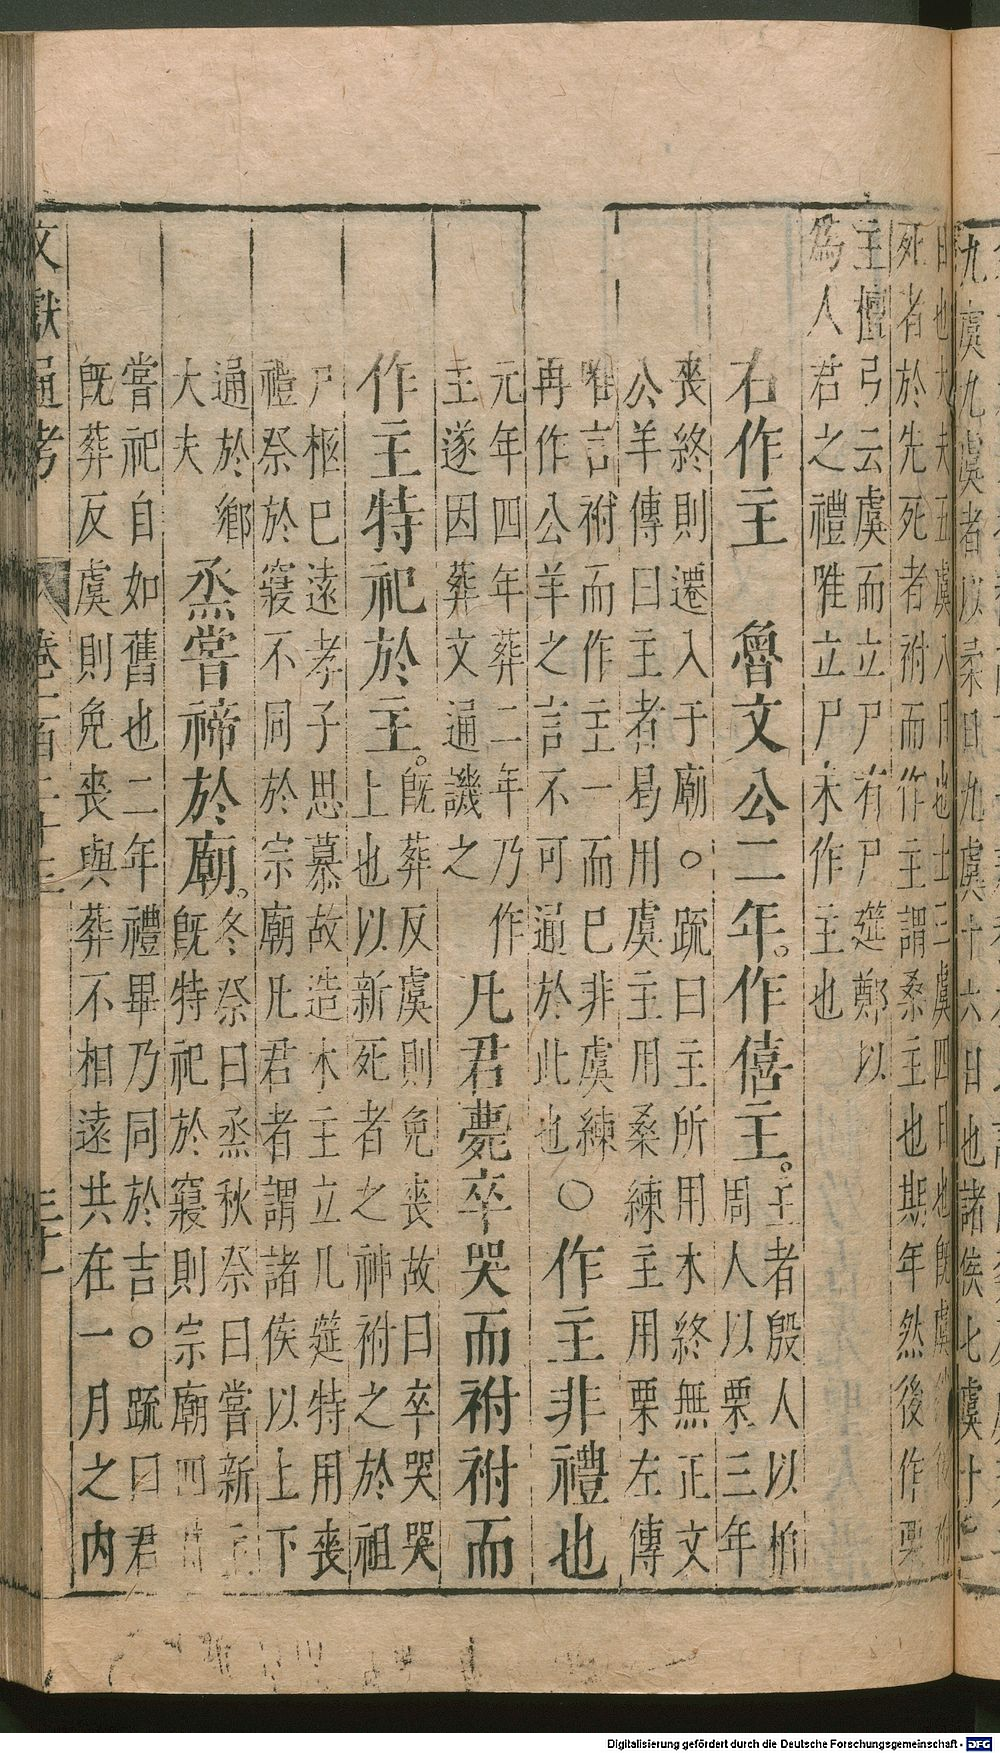 日也大夫五虞八日也士三虞四日也既虞
死者於先死者祔而作主謂桑主也期年然後作栗
主檀弓云虞而立尸有尸筵鄭以
爲人君之禮唯立尸未作主也
右作主　魯文公二年。作僖主。主者殷人以柏
周人以栗三年
喪終則遷入于廟○疏曰主所用木終無正文
公羊傳曰主者曷用虞主用桑練主用栗左傳
唯言祔而作主一而已非虞練
再作公羊之言不可通於此也
○作主非禮也
元年四年葬二年乃作
主遂因葬文通譏之
凡君薨卒哭而祔祔而
作主特祀於主。既葬反虞則免喪故曰卒哭哭
上也以新死者之神祔之於祖
尸柩已遠孝子思慕故造木主立几筵特用喪
禮祭於寢不同於宗廟凡君者謂諸侯以上下
通於鄉
大夫
烝嘗禘於廟。冬祭曰烝秋祭曰嘗新主
既特祀於寢則宗廟四時
嘗祀自如舊也二年禮畢乃同於吉○疏曰君
既葬反虞則免喪與葬不相遠共在一月之内
文獻通考　卷一百二十三　三十一
Digitalisierung gefördert durch die Deutsche Forschungsgemeinschaft - DFG